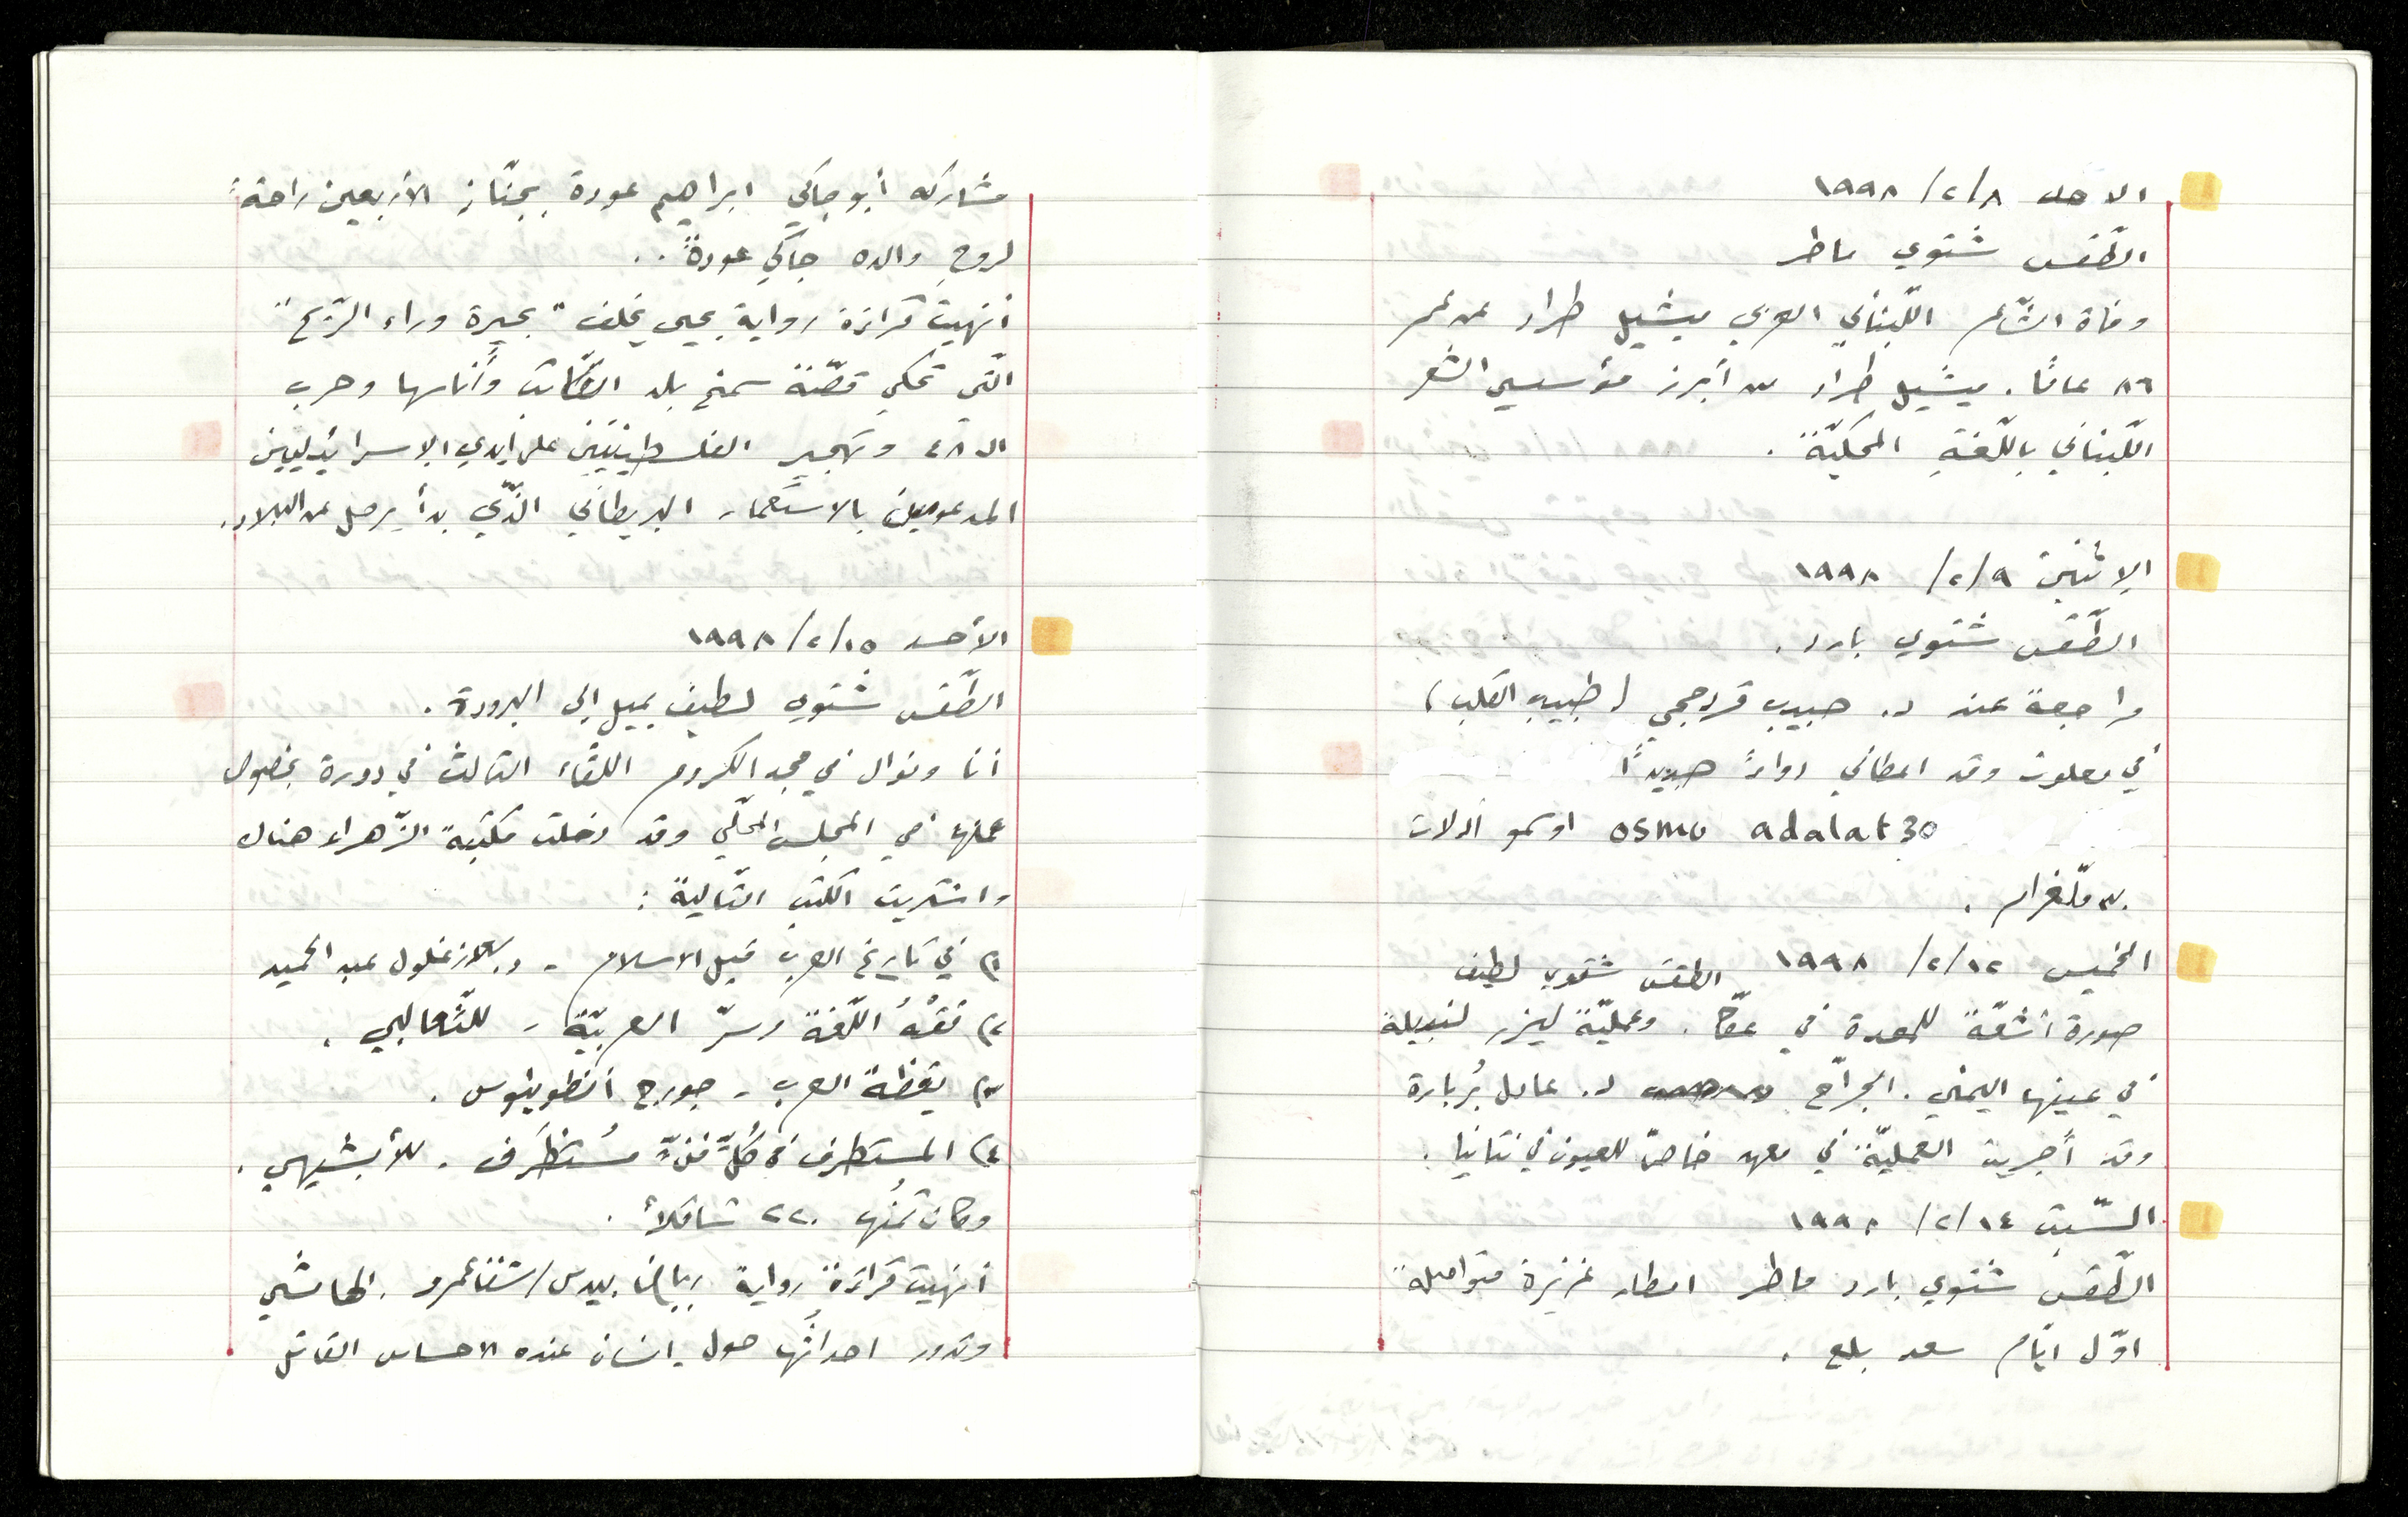 الاحد ٨/٢/ ١٩٩٨
الطّقس شتوي ماطر
وفاة الشّاعر اللّبناني العربي ميشيل طراد عن عمر
٨٦ عامًا. ميشيل طراد من أبرز مؤسسي الشعر
اللّبناني باللّغةِ المحكيّة.
الإثنين ٩/٢/ ١٩٩٨
الطّقس شتوي بارد.
مراجعة عند د. حبيب قردحجي (طبيب القلب)
في معلوت وقد اعطاني دواءً جديدًا
osmo adalat 30 اوسمو أدلات
٣٠ ملّغرام.
الخميس ١٢/٢/ ١٩٩٨ الطقس شتوي لطيف
صورة أشعّة للمعدة في عكّا. وعمليّة ليزر لنبيلة
في عينها اليمنى. الجرّاح د. عادل بُربارة
وقد أجريت العمليّة في معهد خاصّ للعيون في نتانيا.
السّبت ١٤/٢/ ١٩٩٨
الطّقس شتوي بارد ماطر امطار غزيرة متواصلة
اوّل ايّام سعد بلع.
مشاركه أبو جاكي ابراهيم عودة بجنّاز الأربعين راحةً
لروحِ والده جاكي عودة..
أنهيت قراءة رواية يحيى يخلف "بحيرة وراء الرّيح"
الّتي تحكي قصّة سمخ بلد الكّاتب وأناسها وحرب
الـ ٤٨ وتهجير الفلسطينيّين على ايدي الإسرائيليين
المدعومين بالاستعمار البريطاني الّذي بدأ يرحل عن البلاد.
الأحد ١٥/٢/ ١٩٩٨
الطّقس شتوي لطيف يميل إلى البرودة.
أنا ونوال في مجد الكروم اللقاء الثالث في دورة بخصوص
عملها في المجلس المحلّي وقد دخلت مكتبة الزّهراء هناك
واشتريت الكتب التّالية:
١) في تاريخ العرب قبل الاسلام - د. سعد زغلول عبد الحميد
٢) فقهُ اللّغة وسرّ العربيّة - للثّعالبي.
٣) يقظة العرب - جورج أنطونيوس.
٤) المستطرف في كُلِّ فنٍّ مُستظرَف. للأبشيهي.
وكان ثمنُها ٢٢٠ شاقلاً.
أنهيت قراءة رواية بيدس/شفاعمرو. الهامشي
وتدور احداثُها حول إنسان عنده الاحساس القاتل